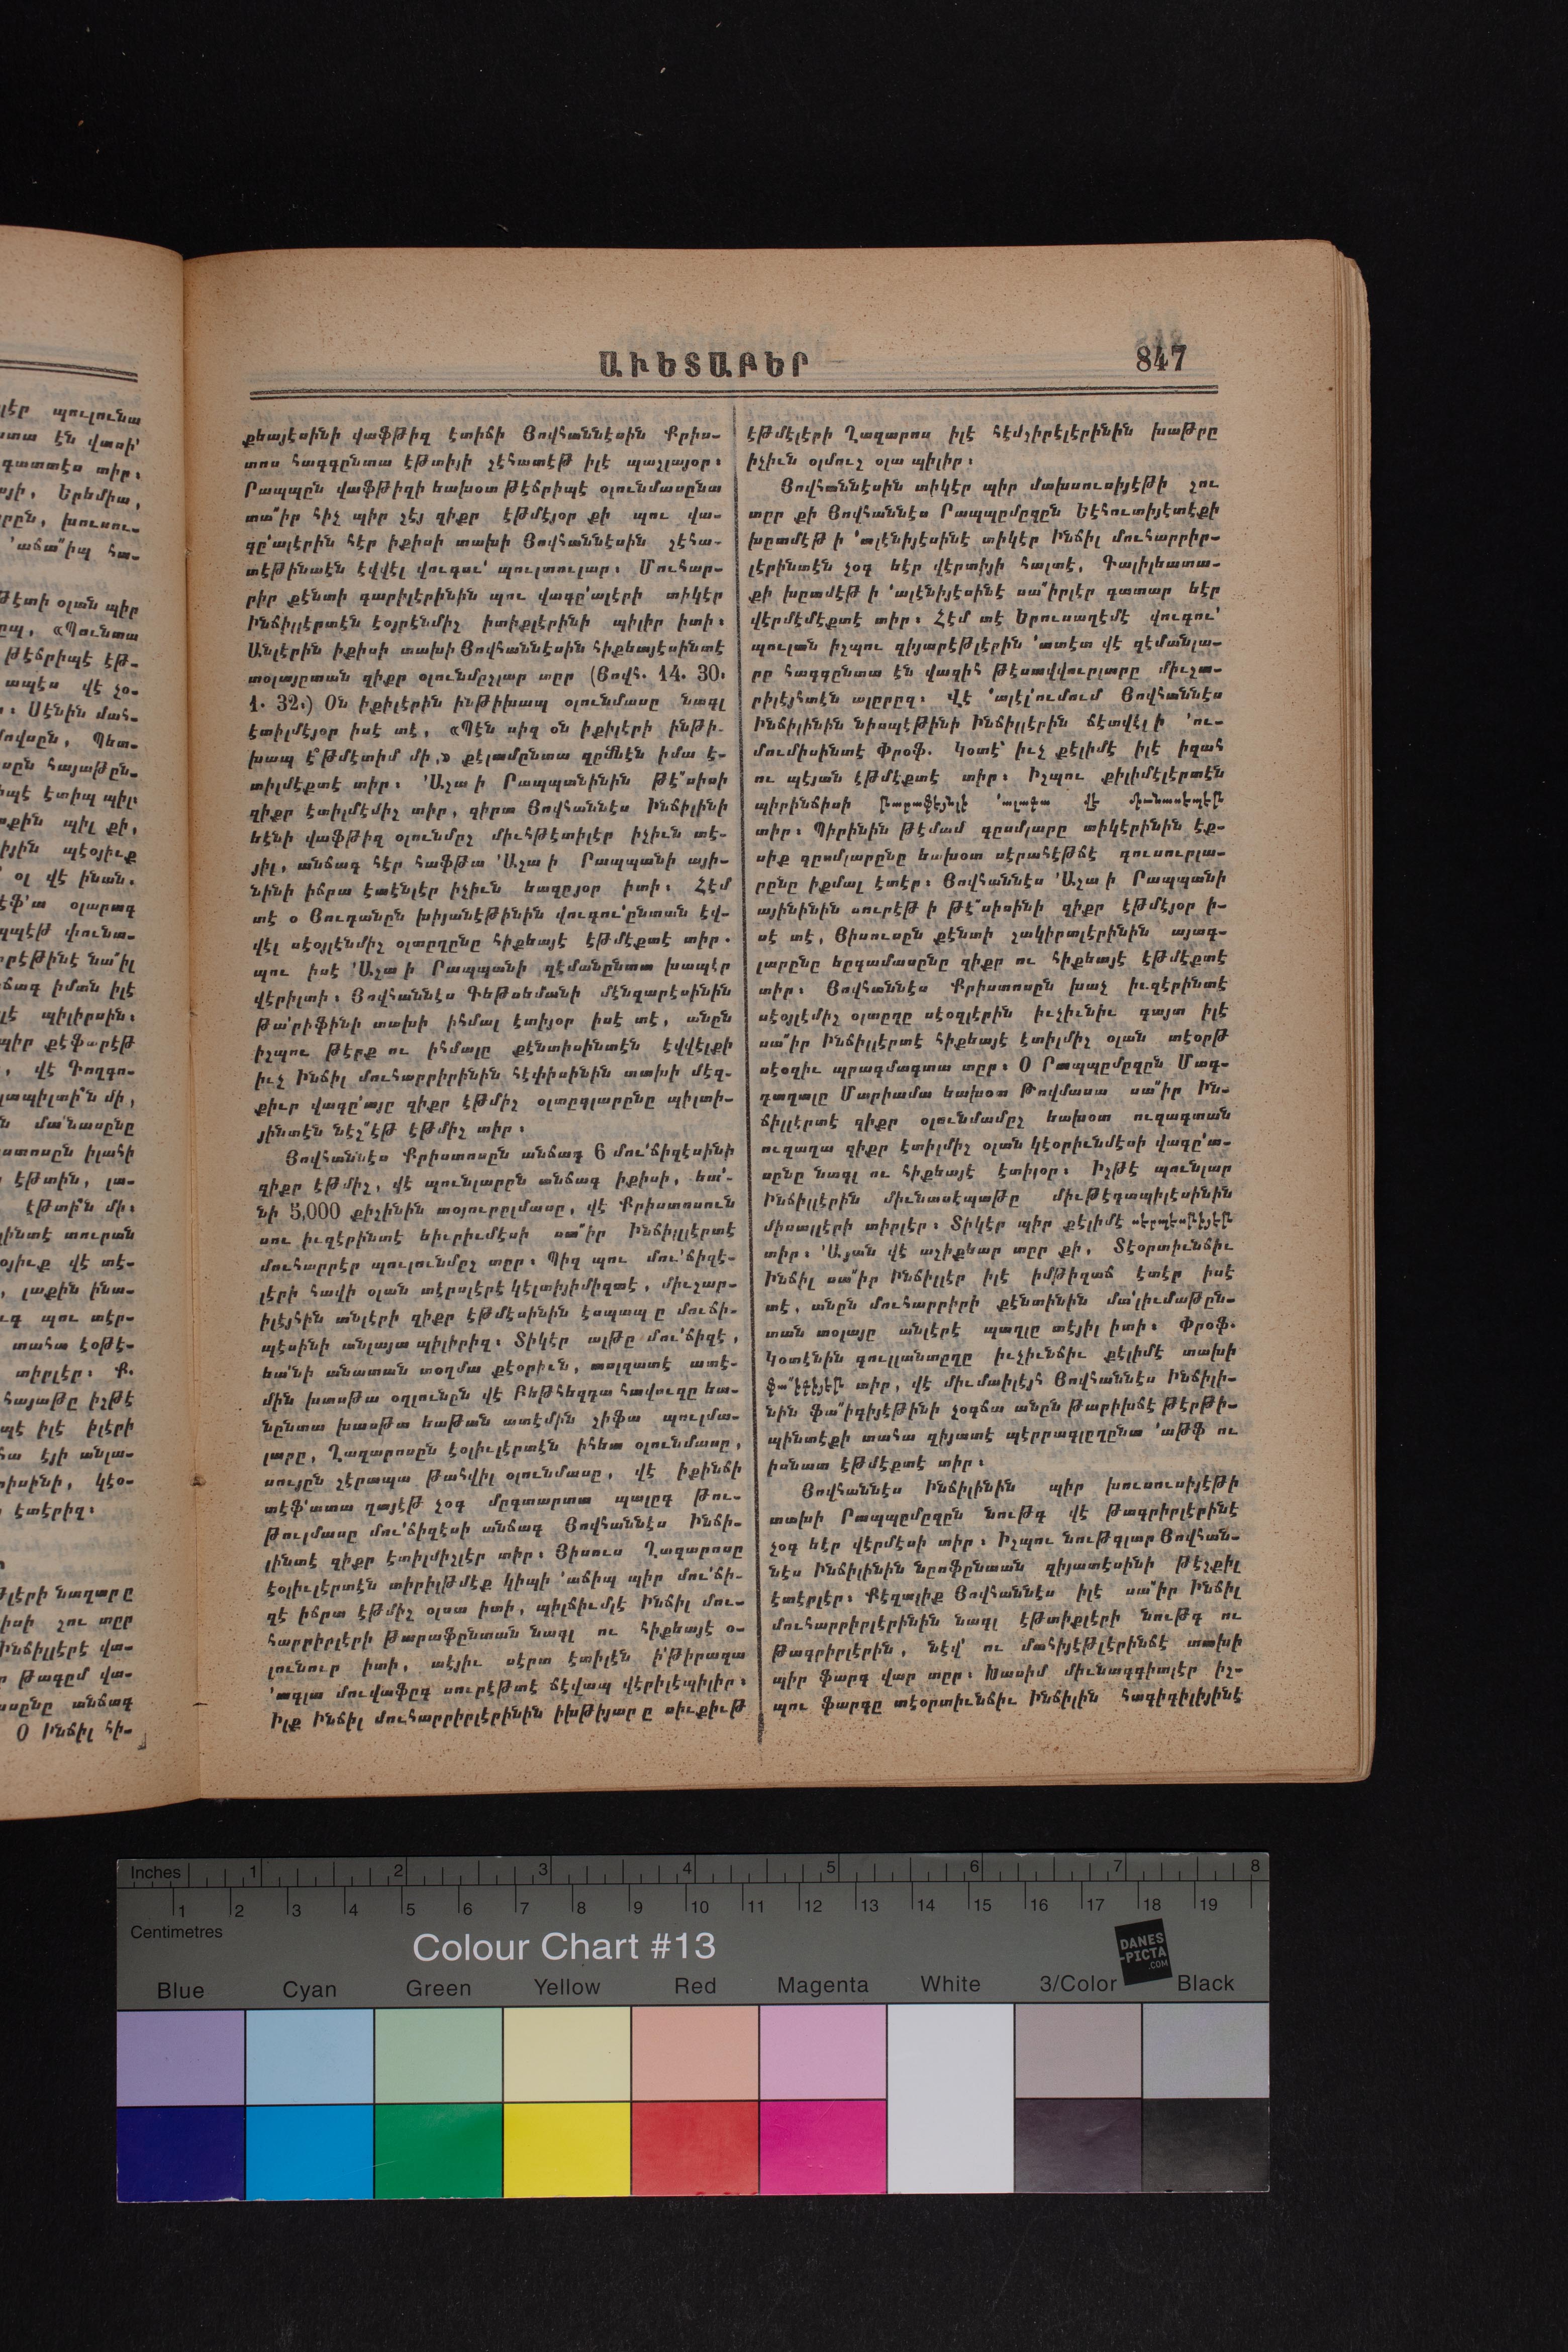 ԱՒԵՏԱԲԵՐ
847
քեայէսինի վաֆթիզ էտիճի Յովհաննէսին Քրիս-
տոս հագգընտա էթտիյի չէհատէթ իլէ պաշլայօր։
Րապպըն վաֆթիզի եախօտ թէճրիպէ օլունմասընտա
տա՟իր հիչ պիր չէյ զիքր էթմէյօր քի պու վա-
գը՛ալէրին հէր իքիսի տախի Յովհաննէսին չէհա-
տէթինտէն էվվէլ վուգու՛ պուլտուլար։ Մուհար-
րիր քէնտի գարիլէրինին պու վագը՛ալէրի տիկէր
Ինճիլլէրտէն էօյրէնմիշ իտիքլէրինի պիլիր իտի։
Անլէրին իքիսի տախի Յովհաննէսին հիքեայէսինտէ
տօլայըտան զիքր օլունմըշլար տըր (Յովհ. 14. 30.
1. 32։) Օն իքիլէրին ինթիխապ օլունմասը նագլ
էտիլմէյօր իսէ տէ, «Պէն սիզ օն իքիլէրի ինթի-
խապ է՞թմէտիմ մի,» քէլամընտա զըմնէն իմա է-
տիլմէքտէ տիր։ ՚Աշա ի Րապպանինին թէ՟սիսի
զիքր էտիլմէմիշ տիր, զիրա Յովհաննէս Ինճիլինի
եէնի վաֆթիզ օլունմըշ միւհթէտիլէր իչիւն տէ-
յիլ, անճագ հէր հաֆթա ՚Աշա ի Րապպանի այի-
նինի իճրա էտէնլէր իչիւն եազըյօր իտի։ Հէմ
տէ օ Յուդանըն խիյանէթինին վուգու՛ընտան էվ-
վէլ սէօյլէնմիշ օլտըղընը հիքեայէ էթմէքտէ տիր.
պու իսէ ՚Աշա ի Րապպանի զէմանընտա խապէր
վէրիլտի։ Յովհաննէս Գեթսեմանի մէնզարէսինին
թա՛րիֆինի տախի իհմալ էտիյօր իսէ տէ, անըն
իշպու թէրք ու իհմալը քէնտիսինտէն էվվէլքի
իւչ Ինճիլ մուհարրիրինին հէփիսինին տախի մէզ-
քիւր վագը՛այը զիքր էթմիշ օլտըգլարընը պիլտի-
յինտէն նէշ՟էթ էթմիշ տիր։
Յովհաննէս Քրիստոսըն անճագ 6 մու՛ճիզէսինի
զիքր էթմիշ, վէ պունլարըն անճագ իքիսի, եա՛-
նի 5,000 քիշինին տօյուրըլմասը, վէ Քրիստոսուն
սու իւզէրինտէ եիւրիւմէսի սա՟իր Ինճիլլէրտէ
մուհարրէր պուլունմըշ տըր։ Պիզ պու մու՛ճիզէ-
լէրի հավի օլան տէրսլէրէ կէլտիյիմիզտէ, միւշար-
իլէյհին անլէրի զիքր էթմէսինին էսպապ ը մուճի-
պէսինի անլայա պիլիրիզ։ Տիկէր ալթը մու՛ճիզէ,
եա՛նի անատան տօղմա քէօրիւն, ասլզատէ ատէ-
մին խասթա օղլունըն վէ Բեթհեզդա հավուզը եա-
նընտա խասթա եաթան ատէմին շիֆա պուլմա-
լարը, Ղազարոսըն էօլիւլէրտէն իհեա օլունմասը,
սույըն շէրապա թահվիլ օլունմասը, վէ իքինճի
տէֆ՛ատա ղայէթ չօգ մըգտարտա պալըգ թու-
թուլմասը մու՛ճիզէսի անճագ Յովհաննէս Ինճի-
լինտէ զիքր էտիլմիշլէր տիր։ Յիսուս Ղազարոսը
էօլիւլէրտէն տիրիլթմէք կիպի ՚աճիպ պիր մու՛ճի-
զէ իճրա էթմիշ օլսա իտի, պիլճիւմլէ Ինճիլ մու-
հարրիրլէրի թարաֆընտան նագլ ու հիքեայէ օ-
լունուր իտի, տէյիւ սէրտ էտիլէն ի՛թիրազա
՚ագլա մուվաֆըգ սուրէթտէ ճէվապ վէրիլէպիլիր։
Իլք Ինճիլ մուհարրիրլէրինին իխթիյար ը սիւքիւթ
էթմէլէրի Ղազարոս իլէ հէմշիրէլէրինին խաթրը
իչիւն օլմուշ օլա պիլիր։
Յովհաննէսին տիկէր պիր մախսուսիյէթի շու
տըր քի Յովհաննէս Րապպըմըզըն Եէհուտիյէտէքի
խըտմէթ ի ՚ալէնիյէսինէ տիկէր Ինճիլ մուհարրիր-
լէրինտէն չօգ եէր վէրտիյի հալտէ, Գալիլեատա-
քի խըտմէթ ի ՚ալէնիյէսինէ սա՟իրլէր գատար եէր
վէրմէմէքտէ տիր։ Հէմ տէ Երուսաղէմէ վուգու՛
պուլան իշպու զիյարէթլէրին ՚ատէտ վէ զէմանլա-
րը հագգընտա էն վազիհ թէսավվուրլարը միւշա-
րիլէյհտէն ալըրըզ։ Վէ ՚ալէլ՛ումում Յովհաննէս
Ինճիլինին նիսպէթինի Ինճիլլէրին ճէտվէլ ի ՚ու-
մումիսինտէ Փրօֆ. Կօտէ՝ իւչ քէլիմէ իլէ իզահ
ու պէյան էթմէքտէ տիր։ Իշպու քիլիմէլէրտէն
պիրինճիսի թարաֆէյնլէ ՚ալագա վէ մինասեպէթ
տիր։ Պիրինին թէմամ գըսմլարը տիկէրինին էք-
սիք գըսմլարընը եախօտ սէրահէթճէ գուսուրլա-
րընը իքմալ էտէր։ Յովհաննէս ՚Աշա ի Րապպանի
այինինին սուրէթ ի թէ՟սիսինի զիքր էթմէյօր ի-
սէ տէ, Յիսուսըն քէնտի շակիրտլէրինին այագ-
լարընը եըգամասընը զիքր ու հիքեայէ էթմէքտէ
տիր։ Յովհաննէս Քրիստոսըն խաչ իւզէրինտէ
սէօյլէմիշ օլտըղը սէօզլէրին իւչիւնիւ գայտ իլէ
սա՟իր Ինճիլլէրտէ հիքեայէ էտիլմիշ օլան տէօրթ
սէօզիւ պրագմագտա տըր։ Օ Րապպըմըզըն Մագ-
ղաղալը Մարիամա եախօտ Թովմասա սա՟իր Ին-
ճիլլէրտէ զիքր օլունմամըշ եախօտ ուզագտան
ուզաղա զիքր էտիլմիշ օլան կէօրիւնմէսի վագը՛ա-
սընը նագլ ու հիքեայէ էտիյօր։ Իշթէ պունլար
Ինճիլլէրին միւնասէպաթը միւթէգապիլէսինին
միսալլէրի տիրլէր։ Տիկէր պիր քէլիմէ սերպեսթիյէթ
տիր։ ՚Այան վէ աշիքեար տըր քի, Տէօրտիւնճիւ
Ինճիլ սա՟իր Ինճիլլէր իլէ իմթիզաճ էտէր իսէ
տէ, անըն մուհարրիրի քէնտինին մա՛լիւմաթըն-
տան տօլայը անլէրէ պաղլը տէյիլ իտի։ Փրօֆ.
Կօտէնին գուլլանտըղը իւչիւնճիւ քէլիմէ տախի
ֆա՟իգիյէթ տիր, վէ միւմաիլէյհ Յովհաննէս Ինճիլի-
նին ֆա՟իգիյէթինի չօգճա անըն թարիխճէ թէրթի-
պինտէքի տահա զիյատէ պէրրագլըղընա ՚աթֆ ու
իսնատ էթմէքտէ տիր։
Յովհաննէս Ինճիլինին պիր խուսուսիյէթի
տախի Րապպըմըզըն նութգ վէ թագրիրլէրինէ
չօգ եէր վէրմէսի տիր։ Իշպու նութգլար Յովհան-
նէս Ինճիլինին նըսֆընտան զիյատէսինի թէշքիլ
էտէրլէր։ Քէզալիք Յովհաննէս իլէ սա՟իր Ինճիլ
մուհարրիրլէրինին նագլ էթտիքլէրի նութգ ու
թագրիրլէրին, նէվ՛ ու մահիյէթլէրինճէ տախի
պիր ֆարգ վար տըր։ Խասիմ միւնազզիտլէր իշ-
պու ֆարգը տէօրտիւնճիւ Ինճիլին հագիգիլիյինէ
Inches 1 2 3 4 5 6 7 8
1 2 3 4 5 6 7 8 9 10 11 12 13 14 15 16 17 18 19
Centimetres
Colour Chart #13
DANES
-PICTA
.COM
Blue Cyan Green Yellow Red Magenta White 3/Color Black